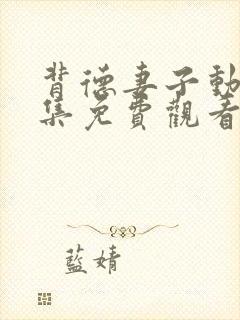 背德妻子動
集免費觀看
藍婧